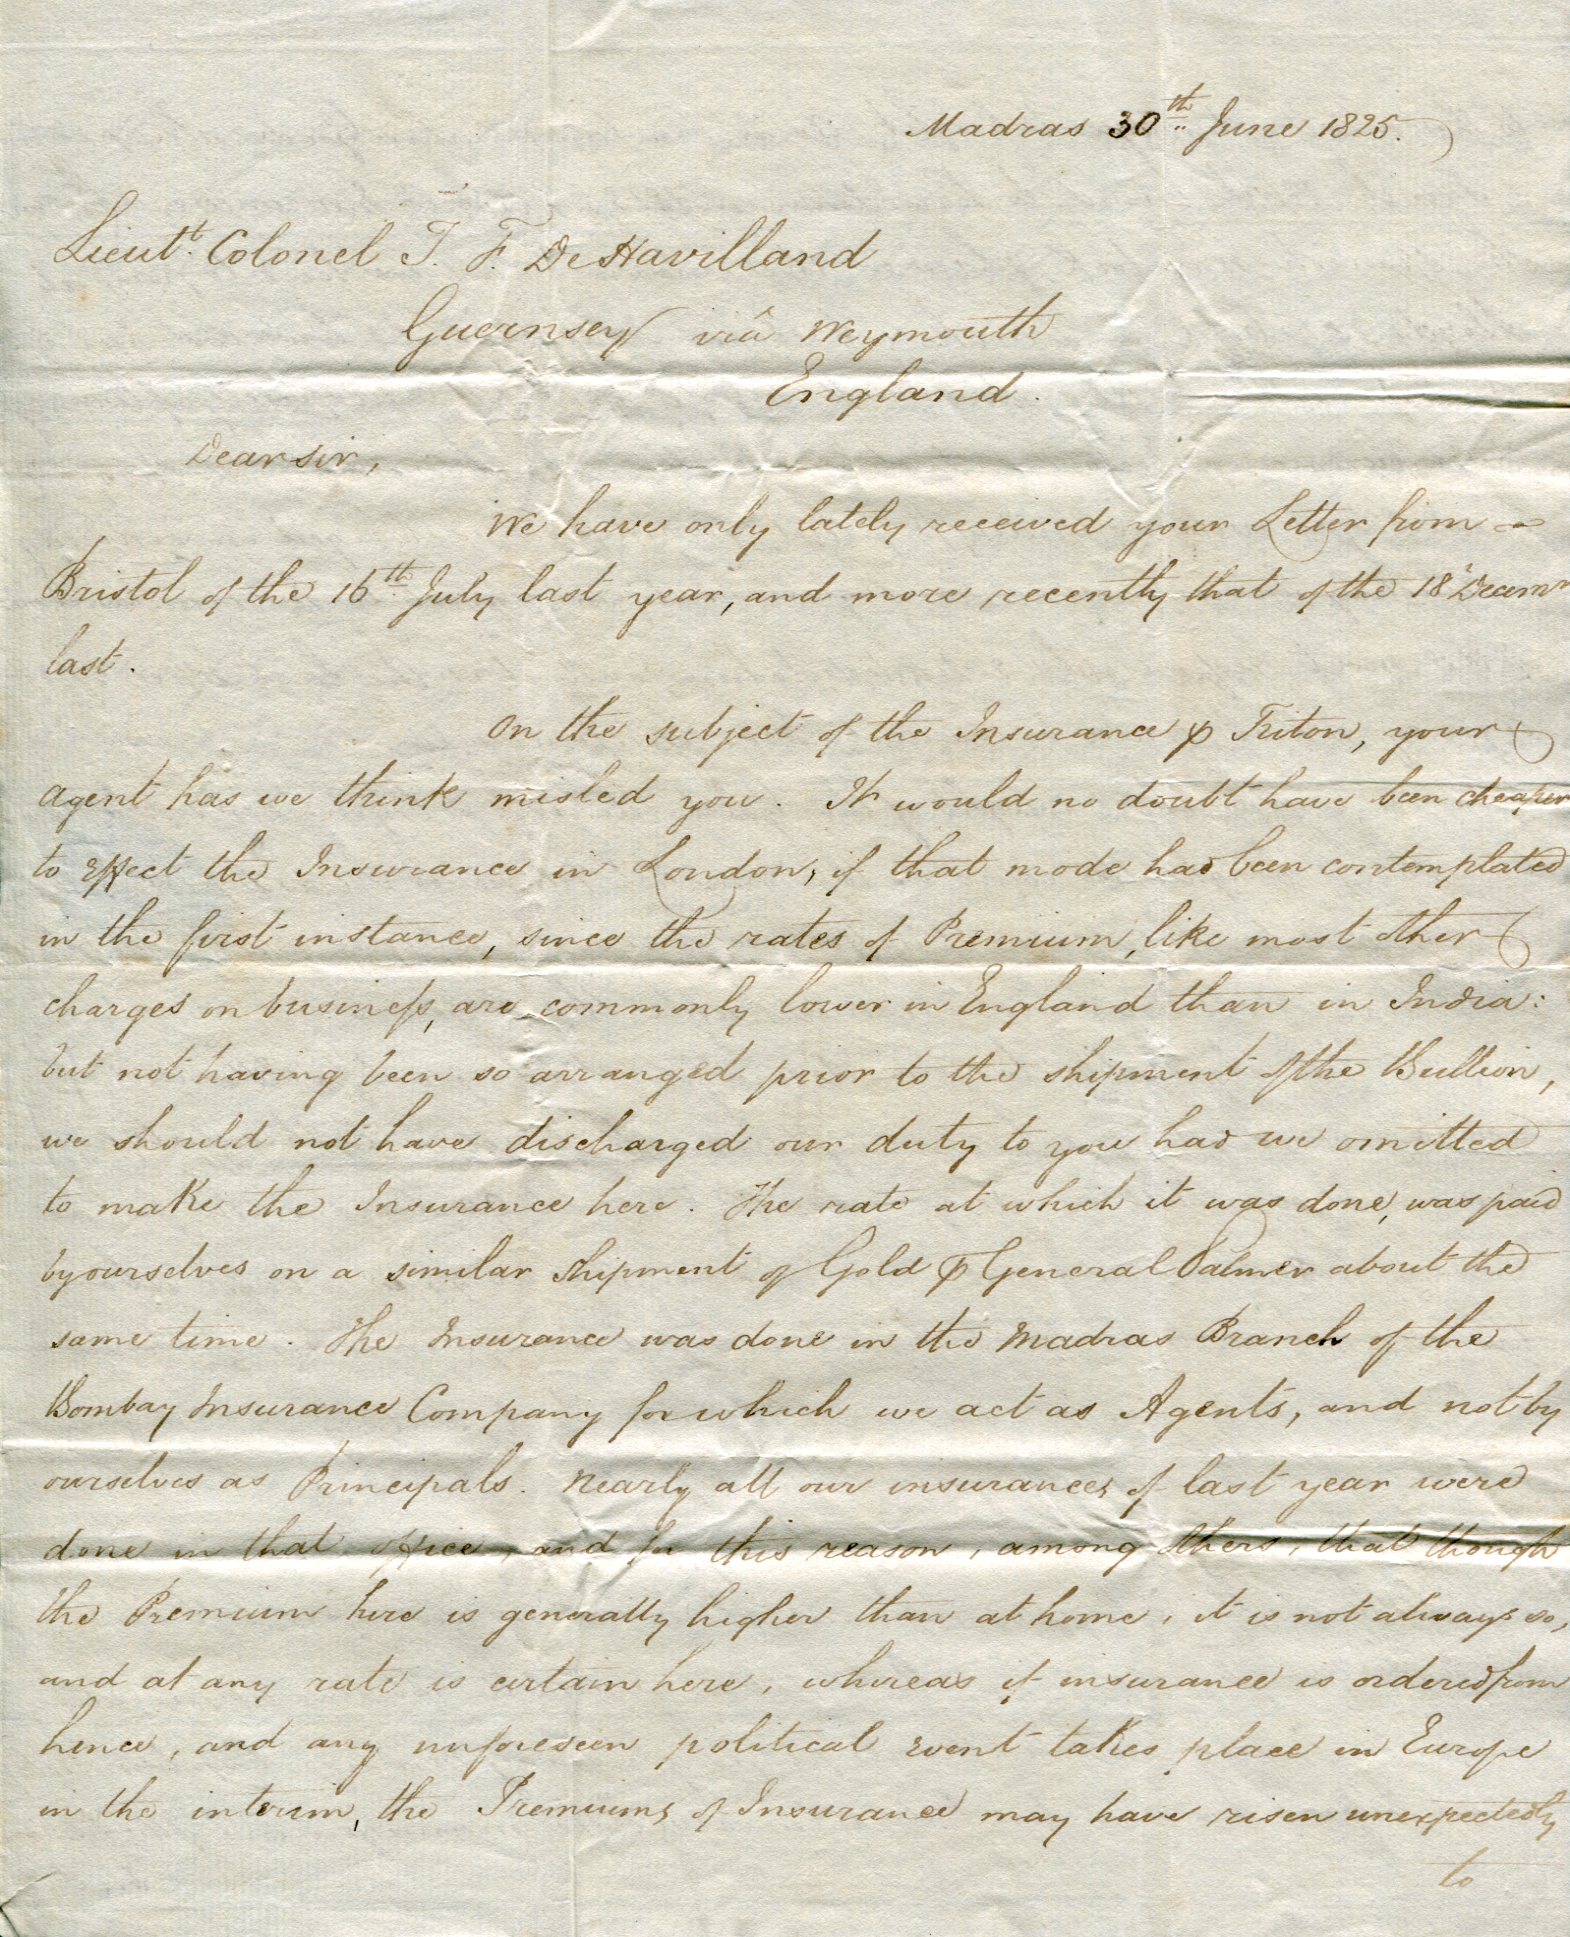 Madras 30th June 1825.
Lieutt. Colonel T. F. De Havilland
Guernsey viâ Weymouth
England.
Dear Sir,
We have only lately received your Letter from
Bristol of the 16th July last year, and more recently that of the 18 Decemr
last.
On the subject of the Insurance ⅌ Triton, your
agent has we think misled you. It would no doubt have been cheaper
to effect the Insurance in London, if that mode had been contemplated
in the first instance, since the rates of Premium, like most other
charges on business, are commonly lower in England than in India:
but not having been so arranged prior to the shipment of the Bullion,
we should not have discharged our duty to you had we omitted
to make the Insurance here. The rate at which it was done, was paid
by ourselves on a similar shipment of Gold ⅌ General Palmer about the
same time. The Insurance was done in the Madras Branch of the
Bombay Insurance Company for which we act as Agents, and not by
ourselves as Principals. Nearly all our insurances of last year were
done in that office, and for this reason, among others, that though
the Premium here is generally higher than at home, it is not always so,
and at any rate is certain here, whereas if insurance is ordered from
hence, and any unforeseen political event takes place in Europe
in the interim, the Premiums of Insurance may have risen unexpectedly
to